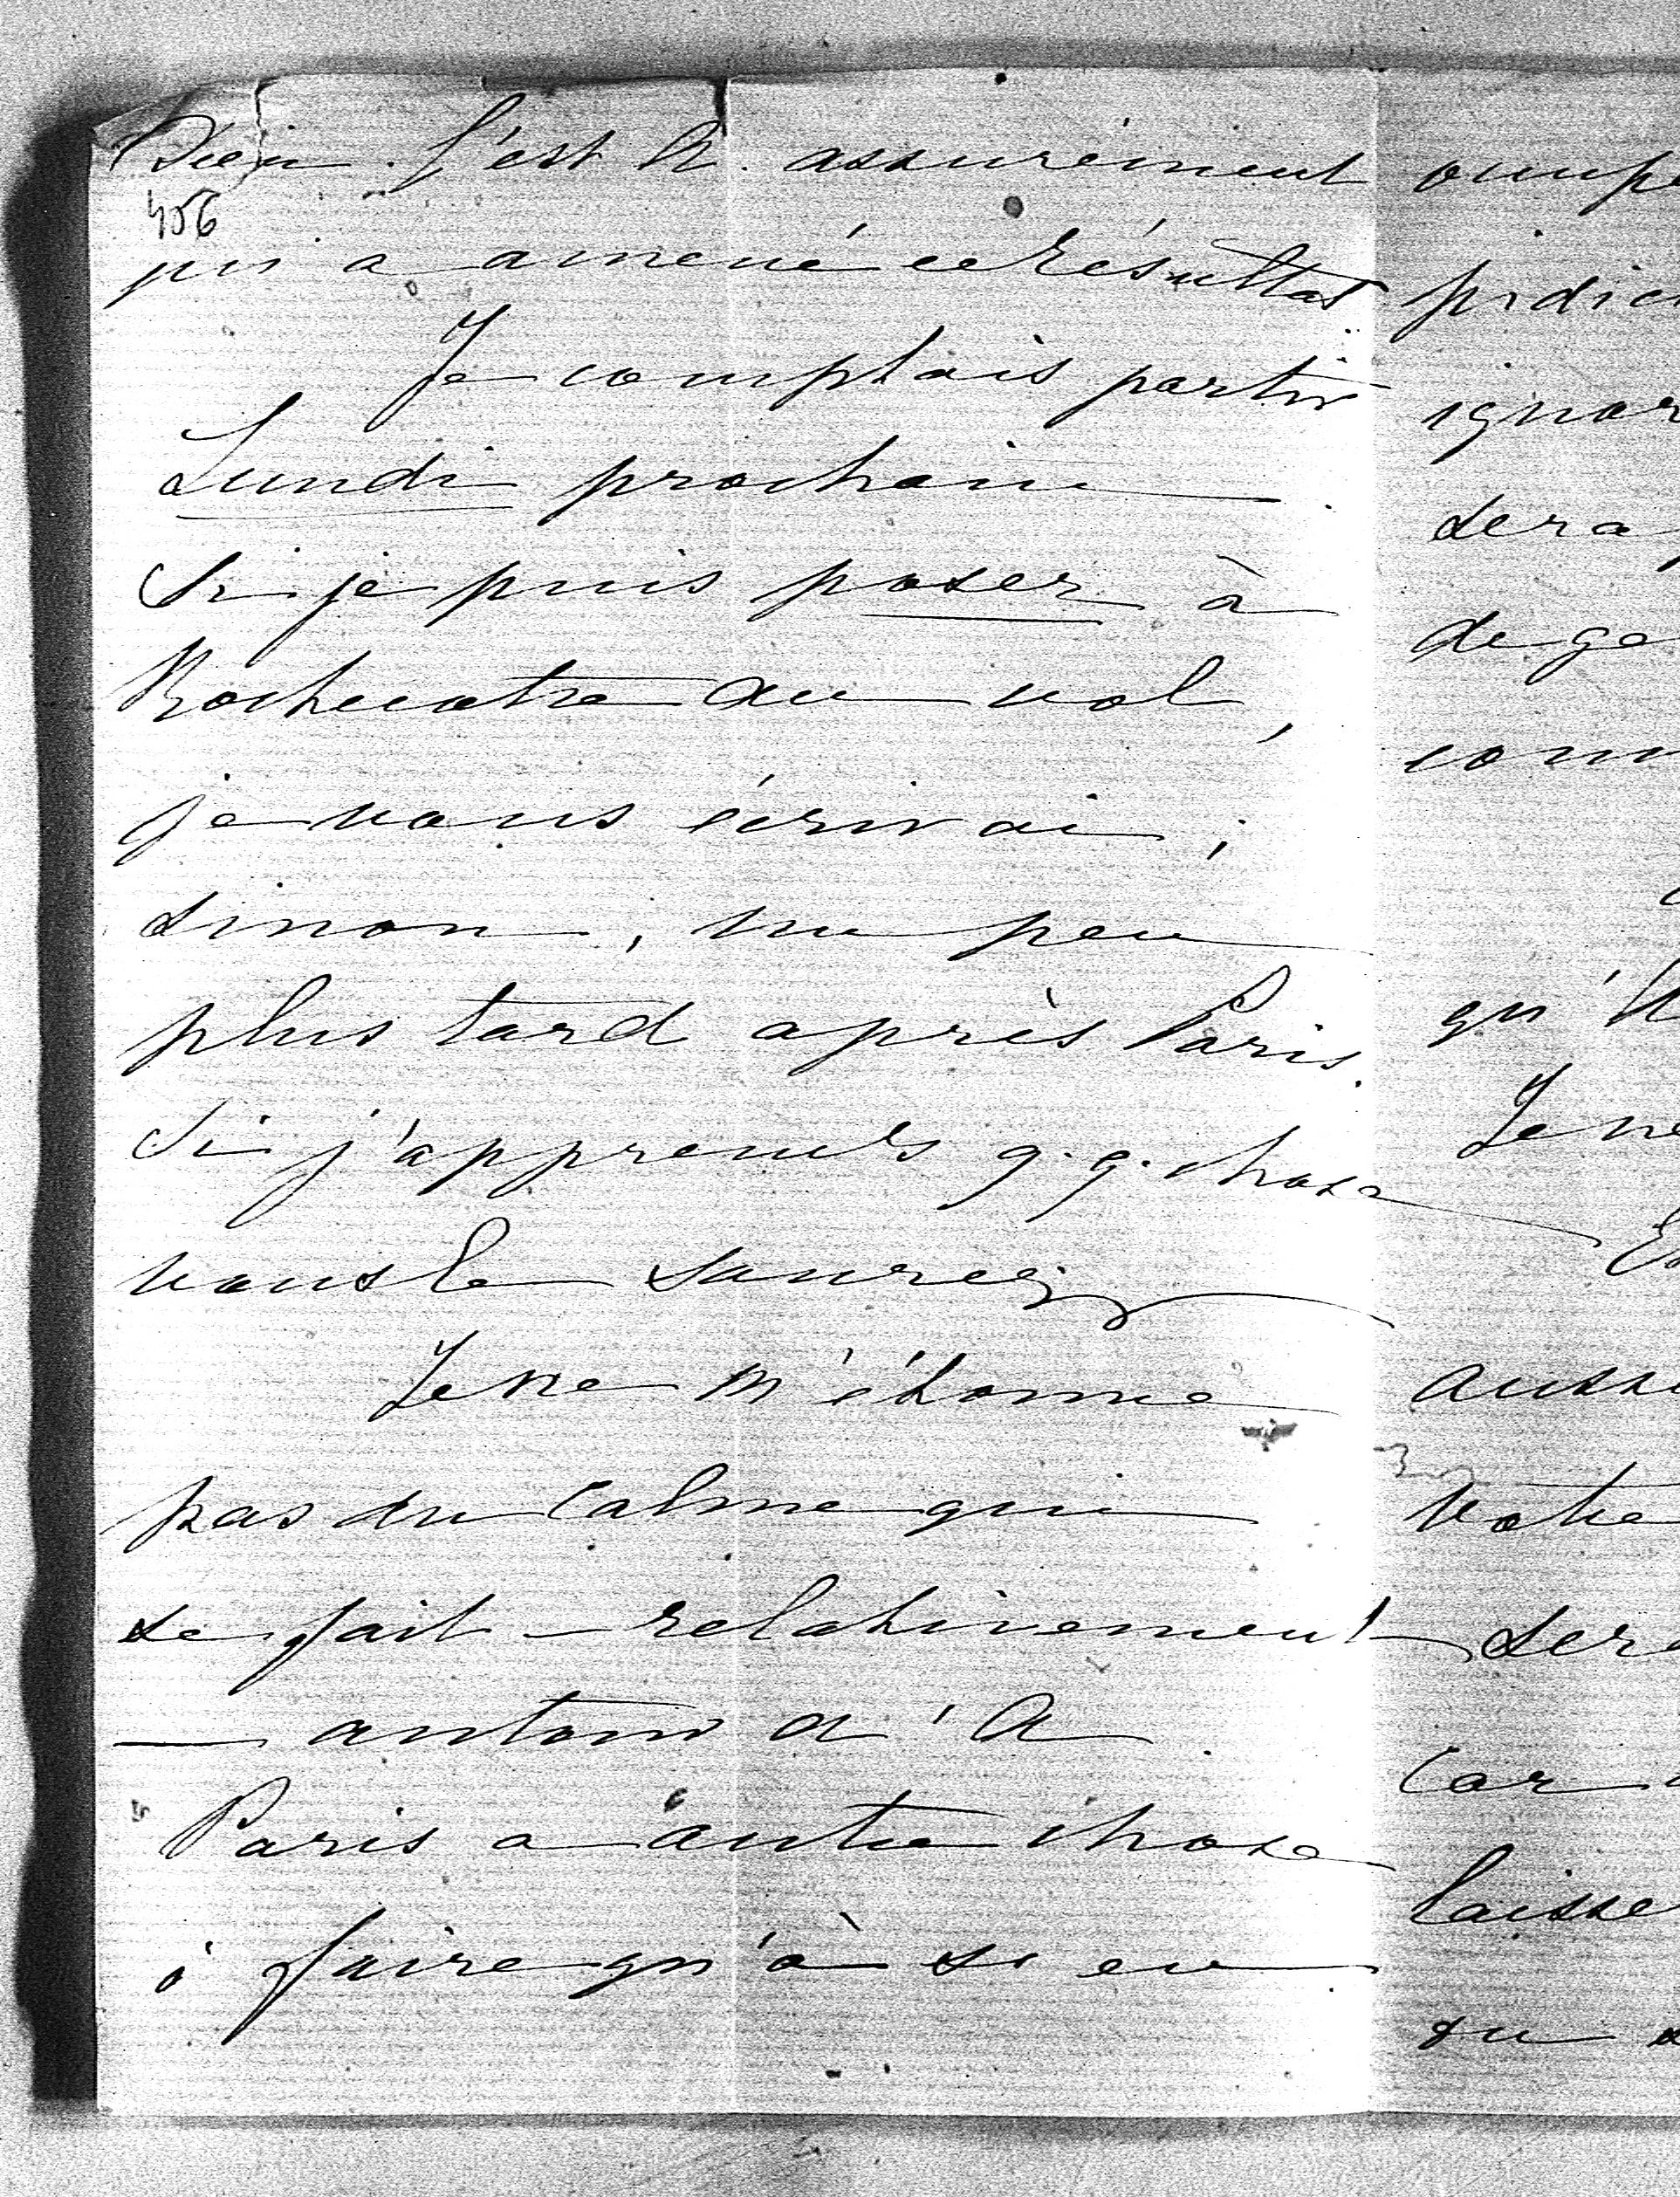 Dieu. C'est lui assurément
456
qui a amené ce résultat
Je comptais partir
Lundi prochain.
Si je puis poser à
Rochecotte au vol,
je vous écrirai;
sinon, un peu
plus tard après Paris.
Si j'apprends q.q. chose
vous le saurez
Je ne m'étonne
pas du calme qui
se fait — relativement
— autour d'A.
Paris a autre chose
à faire qu'à s'en
occupe
ignor
sera
de ge
comm
qu'il
Je ne
aussi
votre
sera
car
laisse
ou